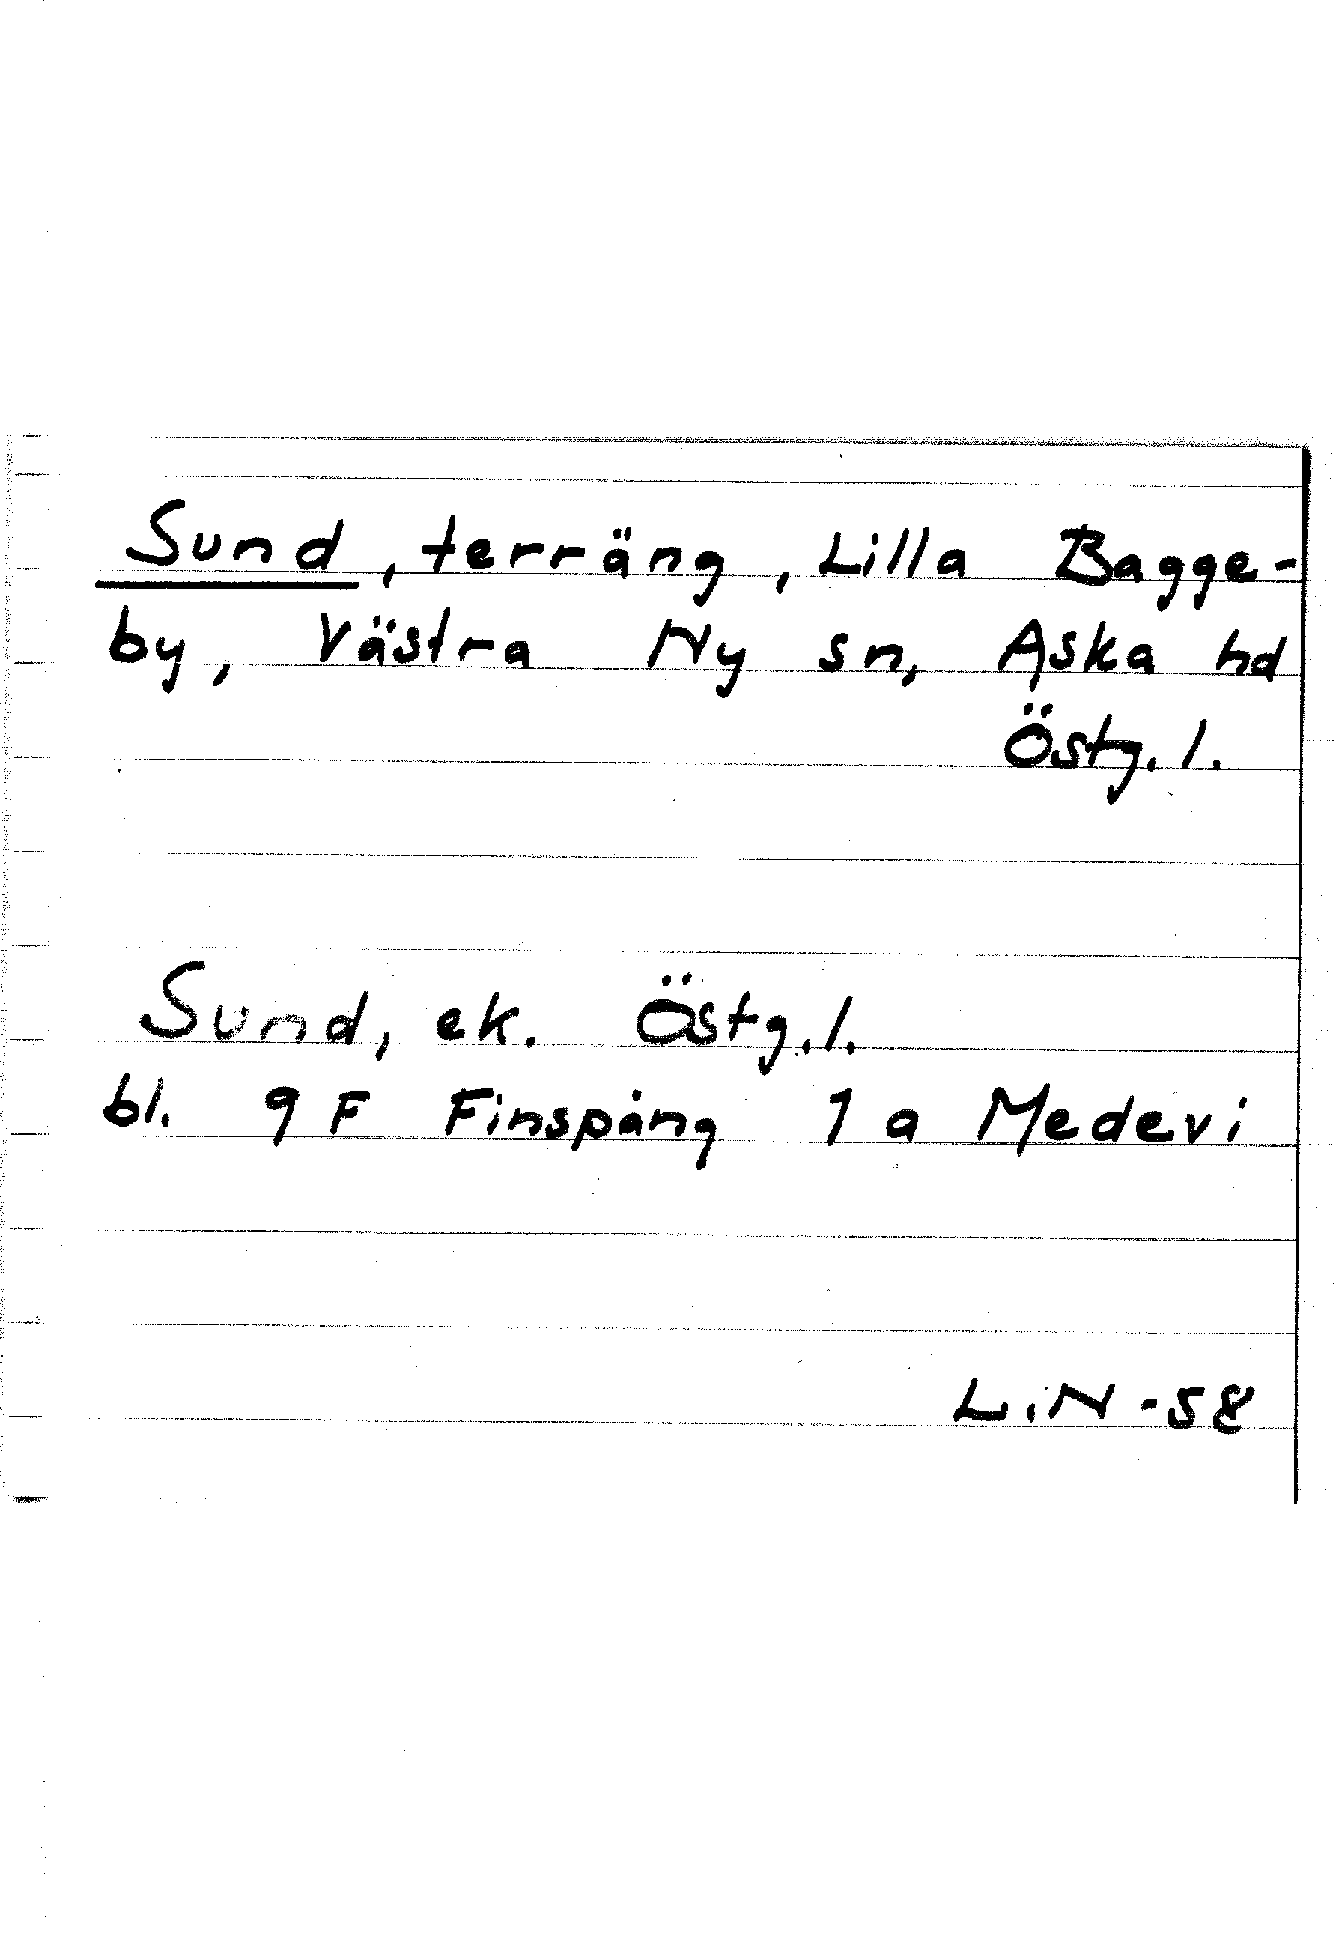 Sund, terräng, Lilla Bagge-
by, Västra Ny sn, Aska hd
Östg. l.
Sund, ek. Östg. l.
bl. 9 F Finspång 1 a Medevi
L.N -58